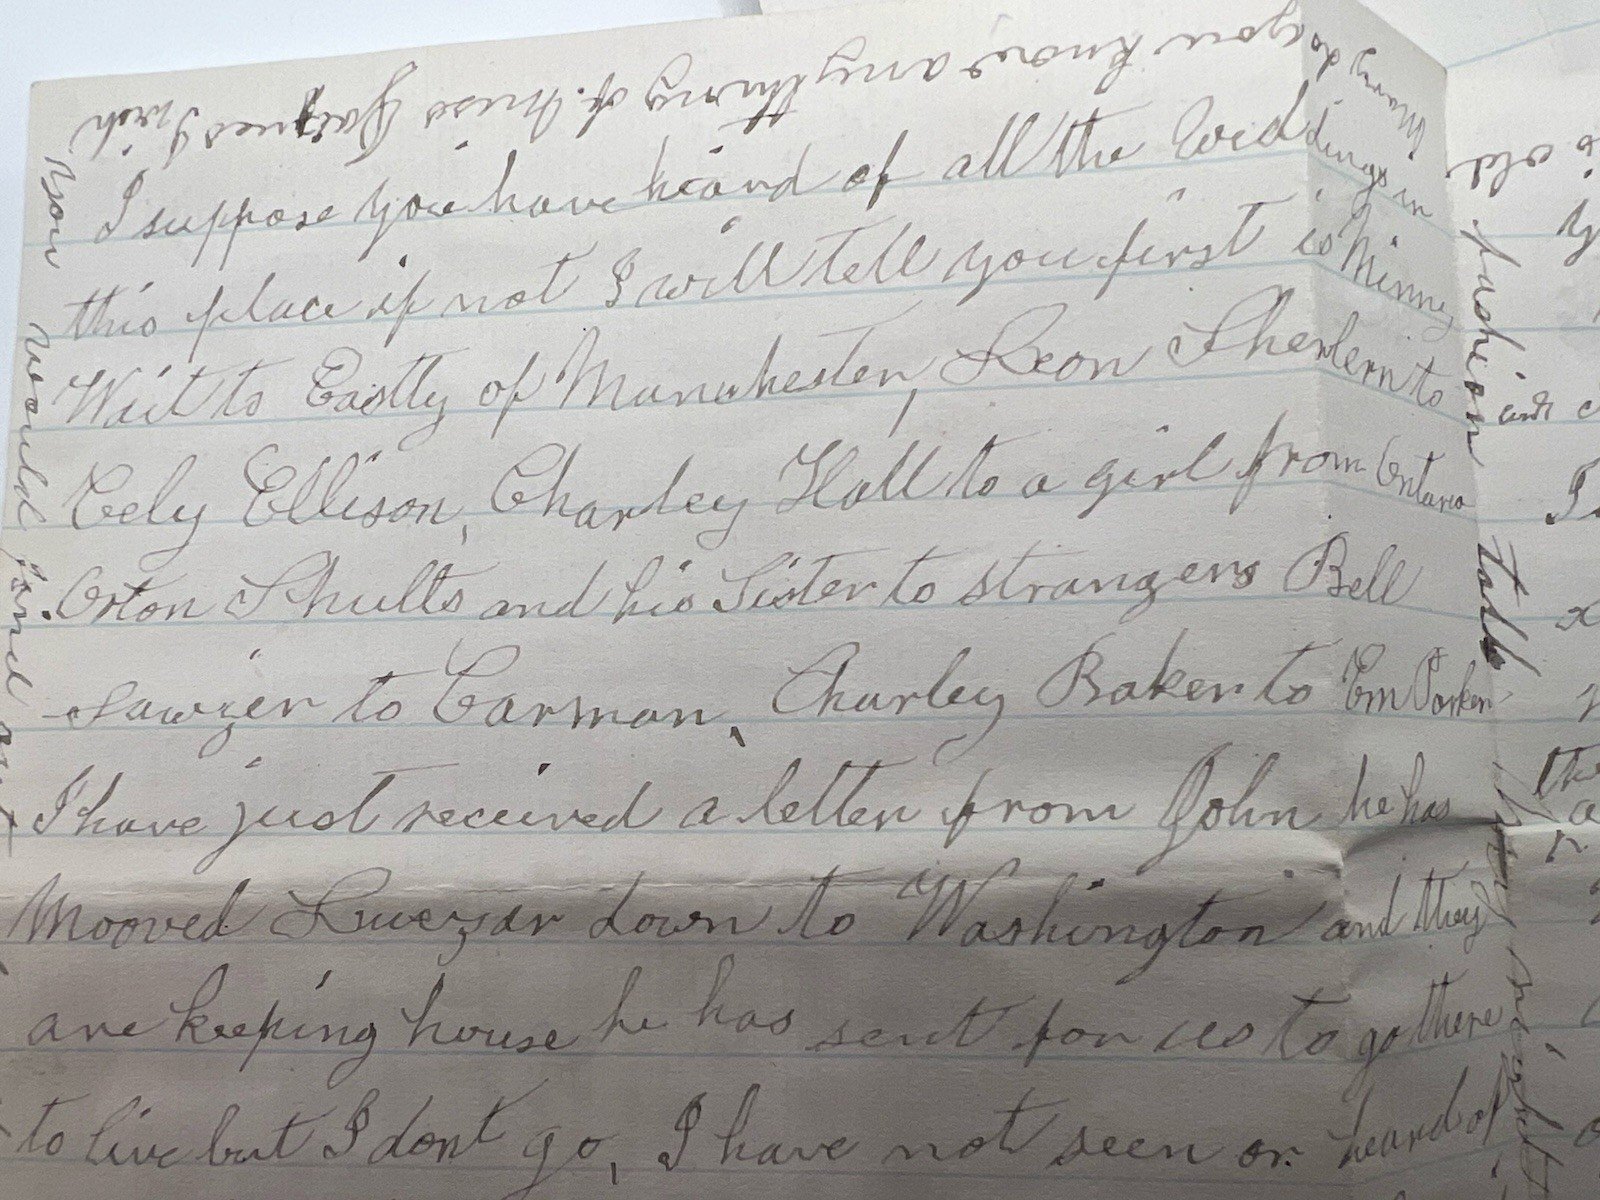 Mary do you know anything of Miss Gaines I wish
you would some
I suppose you have heard of all the weddings in
this place if not I will tell you first is Minney
Wait to Eastty of Manchester, Leon Sherlern to
Cely Ellison, Charley Hall to a girl from Ontario
Orton Shults and his Sister to strangers Bell
Sawyer to Carman, Charley Baker to Em Parker
I have just received a letter from John he has
Mooved Luezar down to Washington and they
are keeping house he has sent for us to go there
to live but I dont go, I have not seen or heard of
old fashion talk